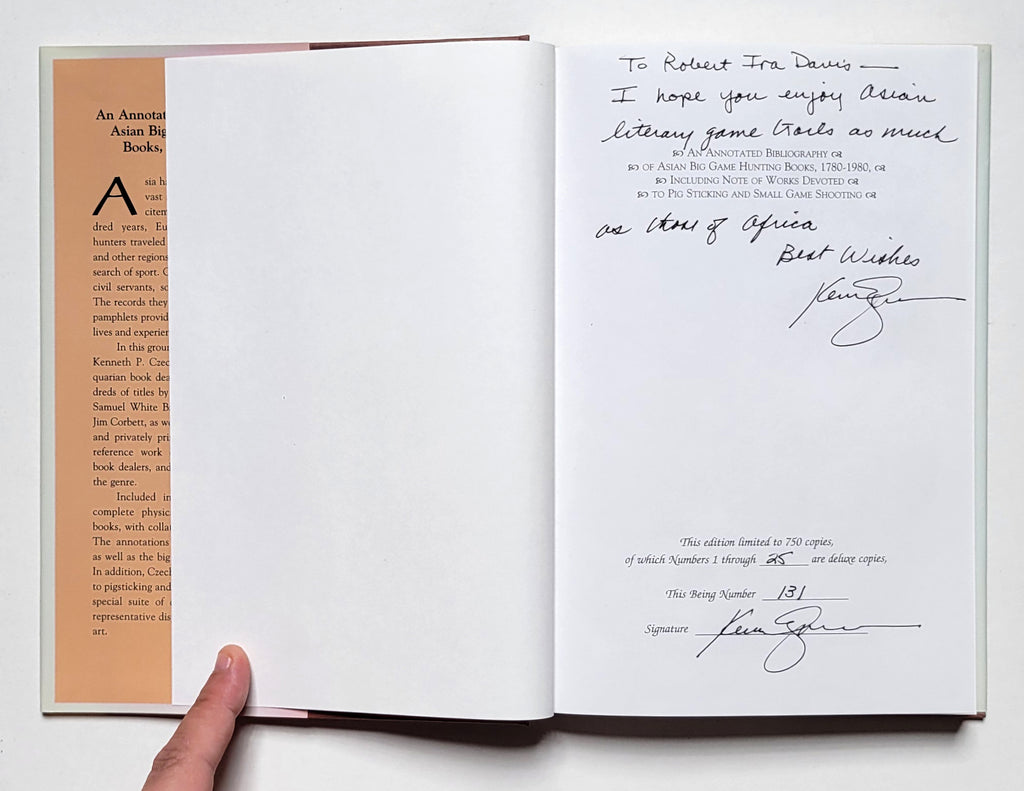 An Annotat
Asian Big
Books,
Asia h
vast
citem
dred years, Eu
hunters traveled
and other regions
search of sport. C
civil servants, so
The records they
pamphlets provid
lives and experier
In this grou
Kenneth P. Czec
quarian book dea
dreds of titles by
Samuel White B
Jim Corbett, as we
and privately pri
reference work
book dealers, and
the genre.
Included in
complete physic
books, with colla
The annotations
as well as the big
In addition, Czech
to pigsticking and
special suite of
representative dis
art.
To Robert Ira Davis —
I hope you enjoy Asian
literary game trails as much
An Annotated Bibliography
of Asian Big Game Hunting Books, 1780-1980,
Including Note of Works Devoted
to Pig Sticking and Small Game Shooting
as those of Africa
Best Wishes
This edition limited to 750 copies,
of which Numbers 1 through 25 are deluxe copies,
This Being Number 131
Signature